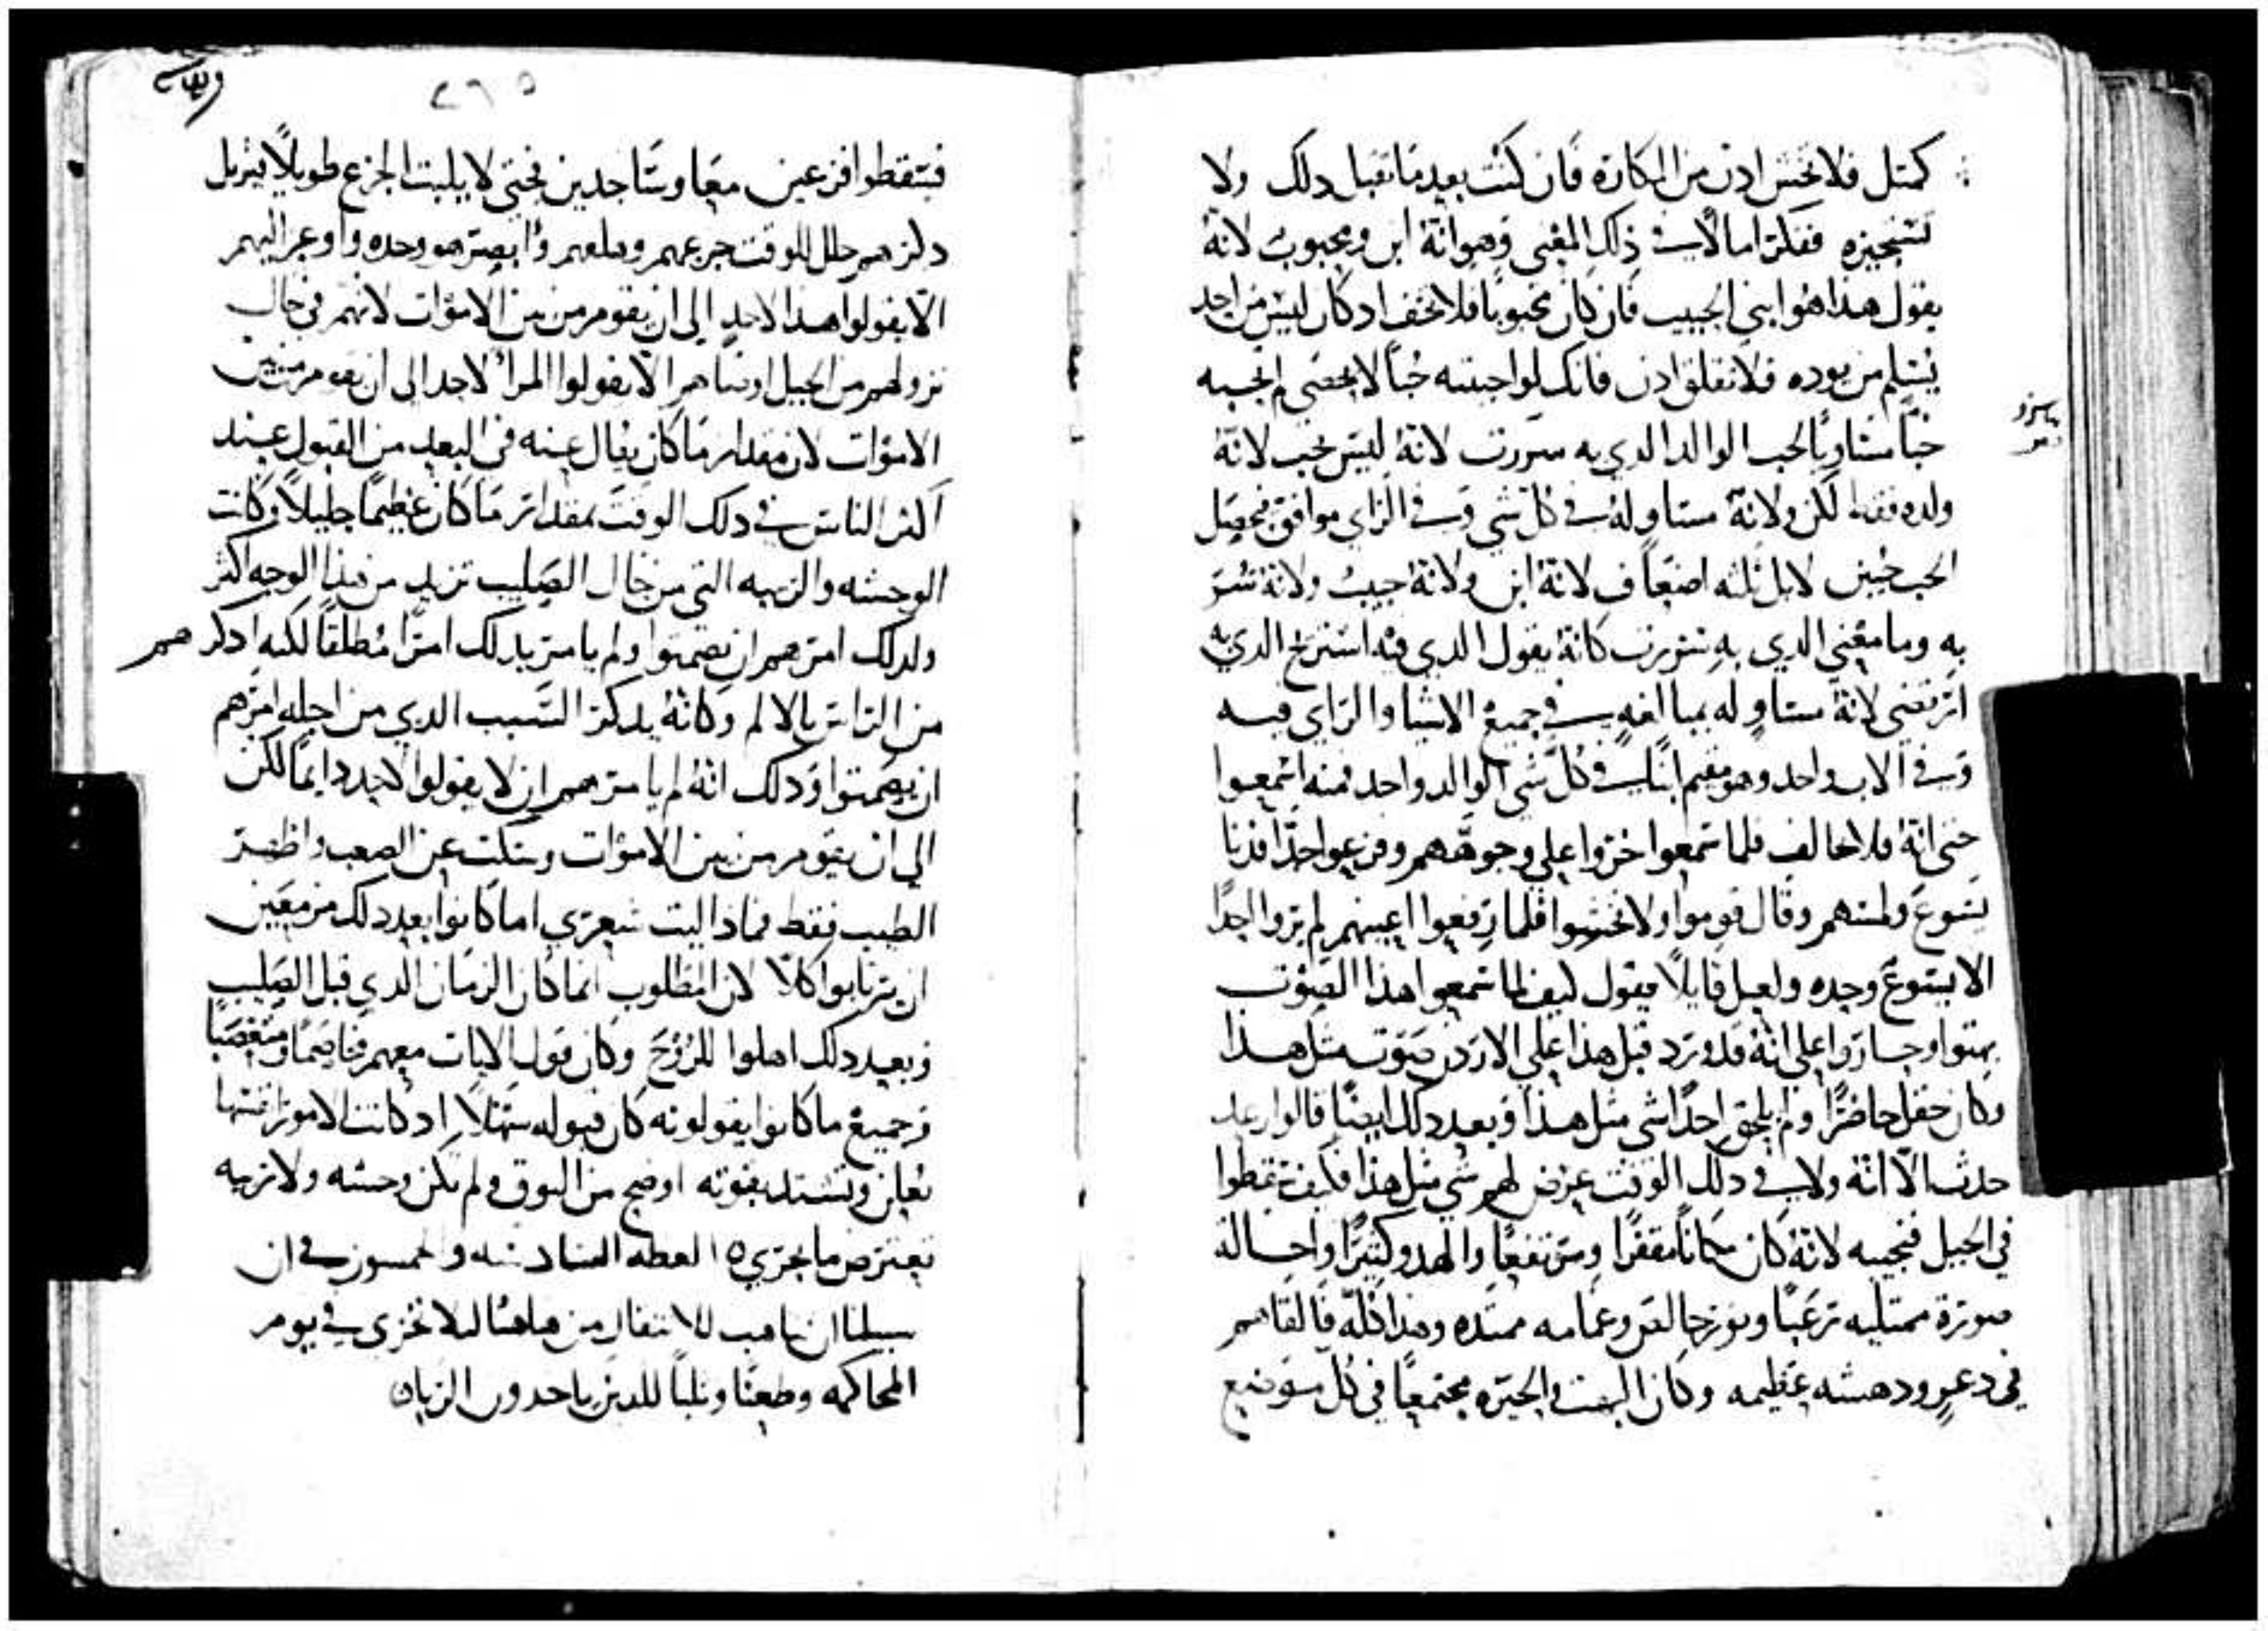 كمثل فلا تخش ادن من المكاره فان كنت بعد ما تقبل دلك ولا
تستجيزه ففكر اما لاب في ذلك المعني وهو انه ابن ومحبوب لانه
يقول هذا هو ابني الحبيب فان كان محبوبا فلا تخف اد كان ليس من احد
يسلم من يوده فلا تقلق ادن فانك لو احببته حبا لا يحصي لم تحبه
حبا مساويا لحب الوالد الدي به سررت لانه ليس يحب لانه
ولده فقط لكن ولانه مساو له في كل شي وفي الراي موافق فحصل
الحب حبين لا بل ثلثه اضعاف لانه ابن ولانه حبيب ولانه سر
به وما معني الدي به سررت كانه يقول الدي فيه استريح الدي به
ارتضي لانه مساو له بمبالغه في جميع الاشيا والراي فيه
وفي الاب واحد وهو مقيم ابنا في كل شي الوالد واحد فمنه اسمعوا
حتي انه فلا تخالف فلما سمعوا خروا علي وجوههم وفزعوا جدا فدنا
يسوع ولمسهم وقال قوموا ولا تخشوا فلما رفعوا اعينهم لم يروا احدا
الا يسوع وحده ولعل قايلا يقول كيف لما سمعوا هذا الصوت
بهتوا وحاروا علي انه قد ورد قبل هذا علي الاردن صوت مثل هذا
وكان حفل حاضرا ولم يلحق احدا شي مثل هذا وبعد دلك ايضا قالوا رعد
حدث الا انه ولا في دلك الوقت عرض لهم شي مثل هذا فكيف سقطوا
في الجبل فنجيبه لانه كان مكانا مقفرا ومرتفعا والهدو كثيرا واحاله
صورة ممتليه رعبا ونور خالص وغمامه ممتده وهذا كله فالقاهم
في دعر ودهشه عظيمه وكان البهت والحيره مجتمعا في كل موضع
٢٦٥
فسقطوا فزعين معا وساجدين فحتي لا يلبث الجزع طويلا فيزيل
دكرهم حلل للوقت جزعهم وهلعهم وابصر هو وحده واوعز اليهم
الا يقولوا هدا لاحد الي ان يقوم من بين الاموات لانهم في حال
نزولهم من الجبل اوصاهم الا يقولوا المرا لاحد الي ان يقوم من بين
الاموات لان مقدار ما كان يقال عنه في البعد من القبول عند
اكثر الناس في دلك الوقت بمقدار ما كان عظيما جليلا وكانت
الوحشه والريبه التي من حال الصليب تزيد من هذا الوجه اكثر
ولدلك امرهم ان يصمتوا ولم يامر بدلك امرا مطلقا لكنه ادكرهم
من الراس بالالم وكانه يدكر السبب الدي من اجله امرهم
ان يصمتوا ودلك انه لم يامرهم ان لا يقولوا لاحد دايما لكن
الي ان يقوم من بين الاموات وسكت عن الصعب واظهر
الطيب فقط فماذا ليت شعري اما كانوا بعد دلك مزمعين
ان يرتابوا كلا لان المطلوب انما كان الزمان الدي قبل الصليب
وبعد دلك اهلوا للروح وكان قول الايات معهم مخاصما ومتعصبا
وجميع ما كانوا يقولونه كان قبوله سهلا اد كانت الامور نفسها
تعلن وتشتد بقوته اوضح من البوق ولم تكن وحشه ولا ريبه
تعترض ما يجري ٥ العظه السادسه والخمسون في ان
سبيلنا ان نتاهب للانتقال من هاهنا ليلا نخزي في يوم
المحاكمه وطعنا وثلبا للدين ياخدون الربا